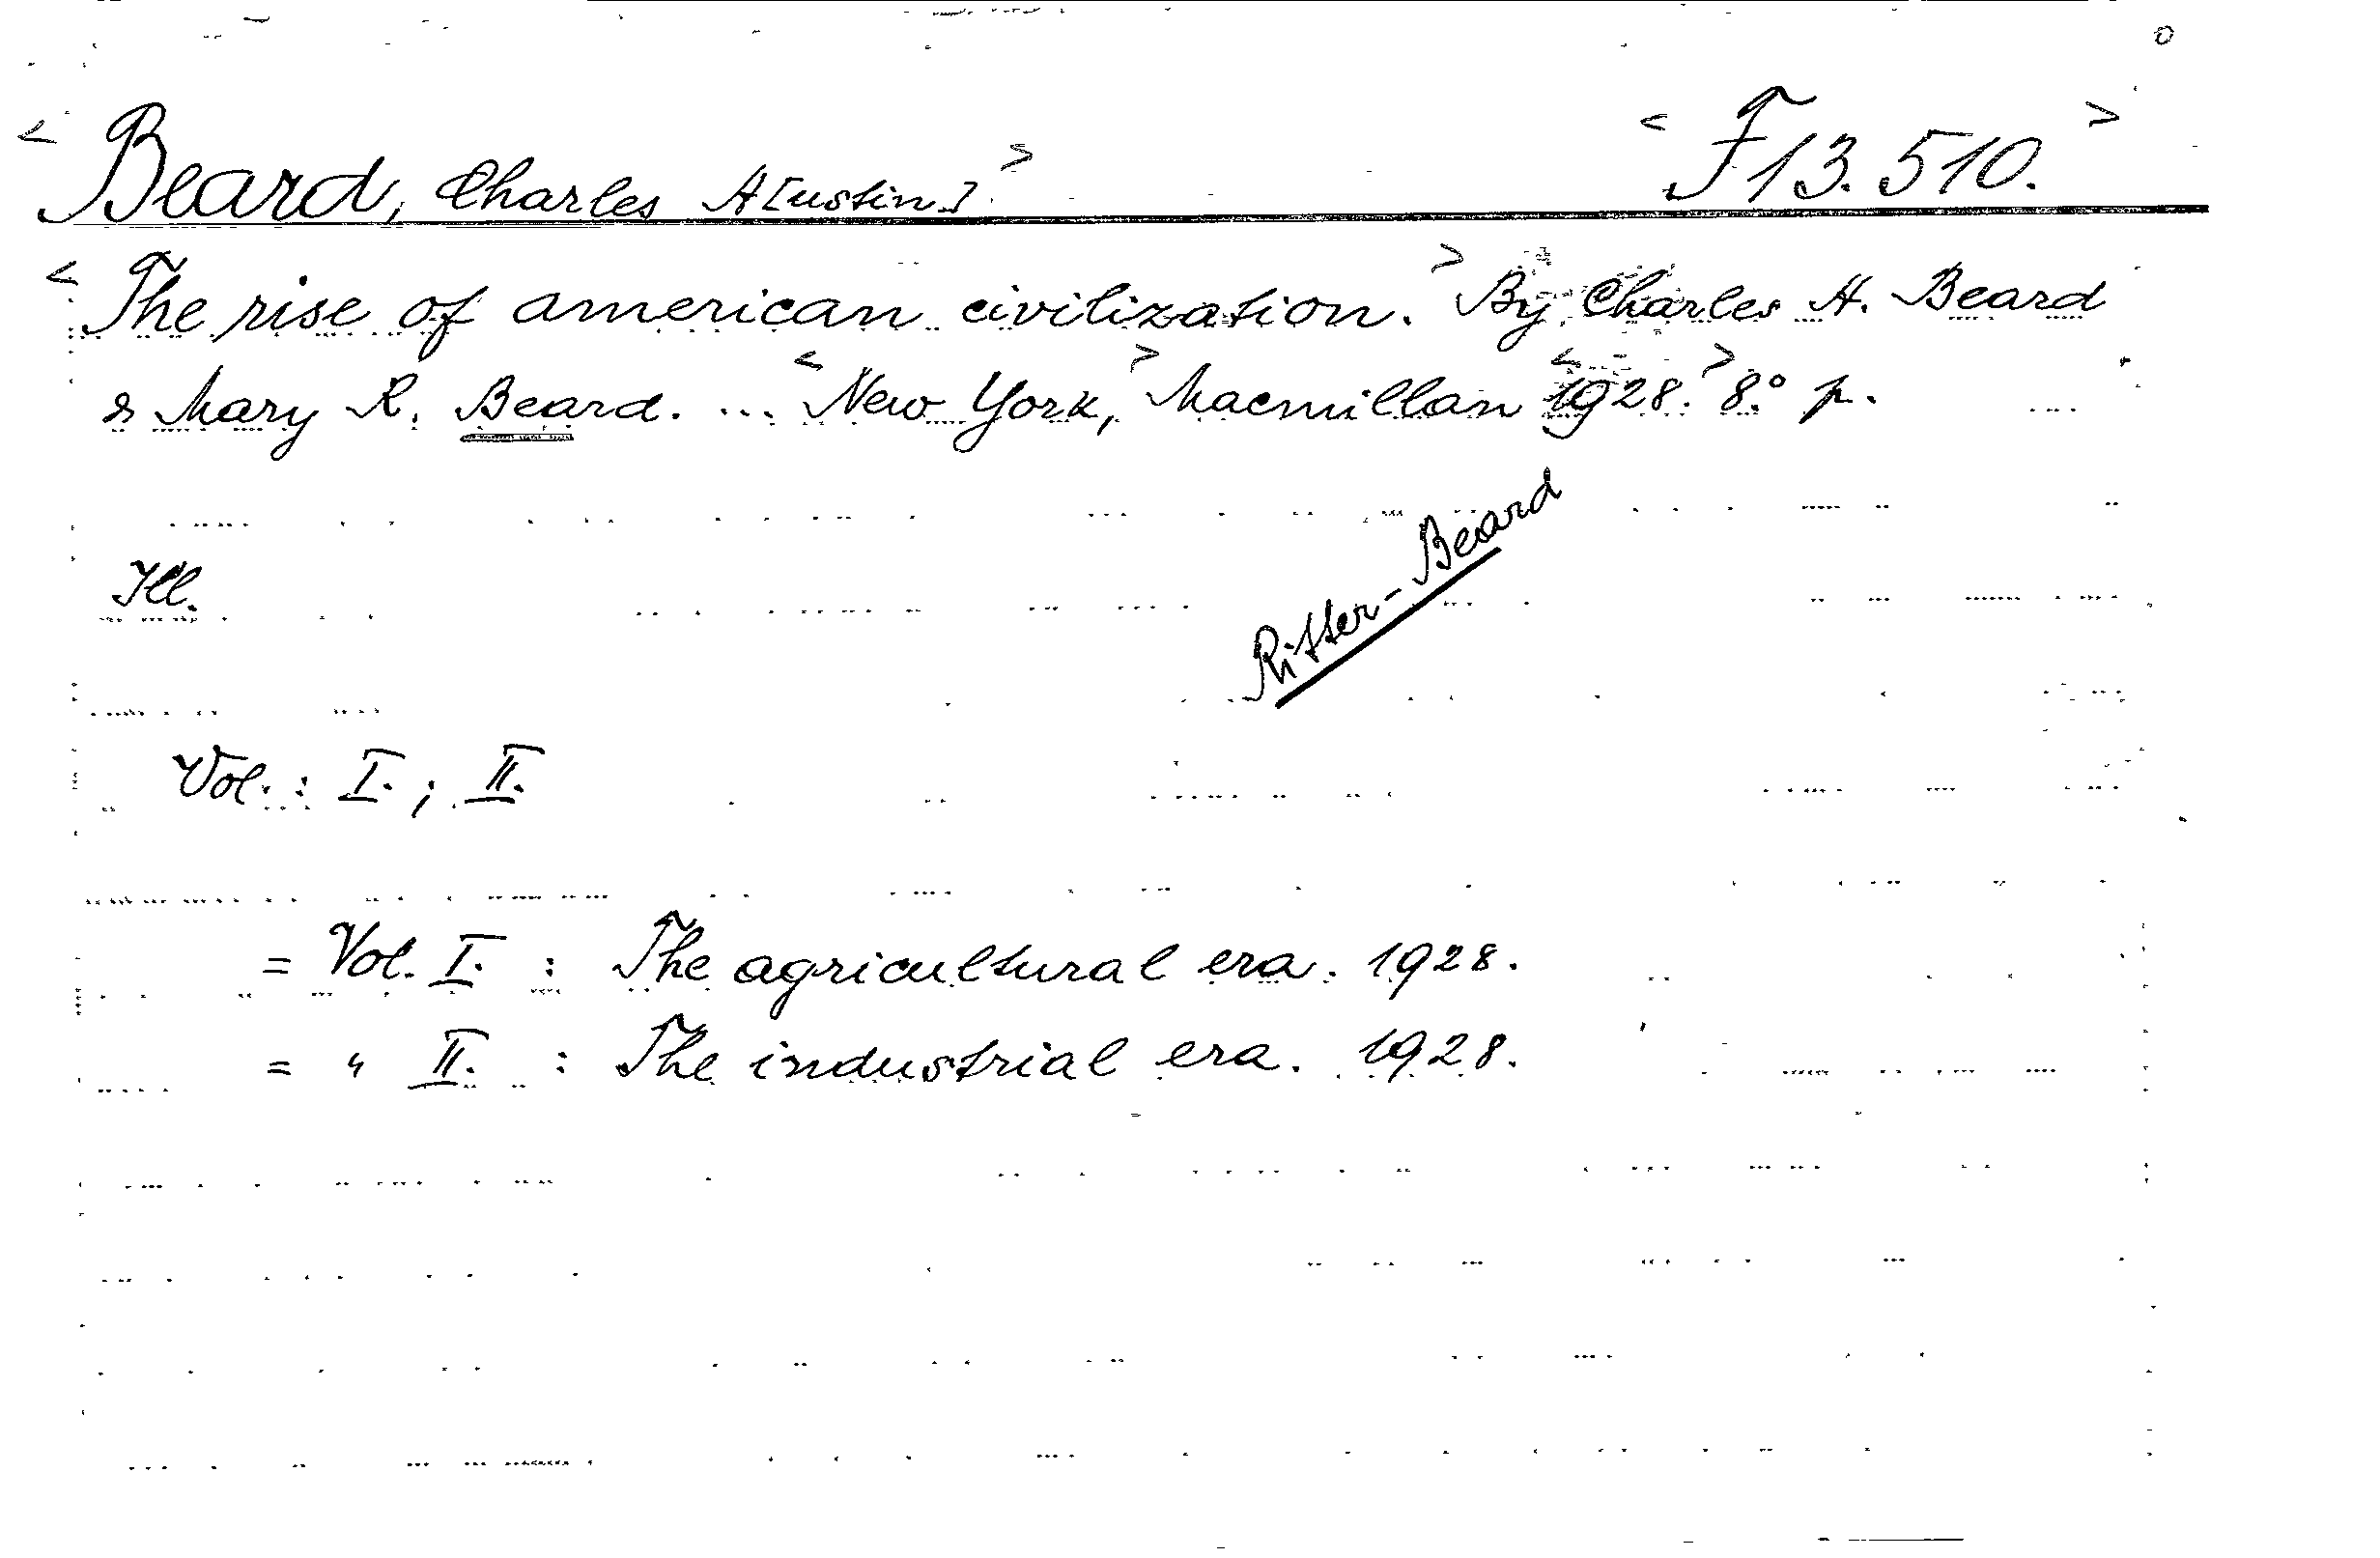 < Beard, Charles A[ustin] > < F 13.510. >
< The rise of american civilization. > By Charles A. Beard
& Mary R. Beard. ... < New York, > Macmillan < 1928. > 8.° p.
Ritter-Beard
Ill.
Vol.: I.; II.
= Vol. I. : The agricultural era. 1928.
= " II. : The industrial era. 1928.